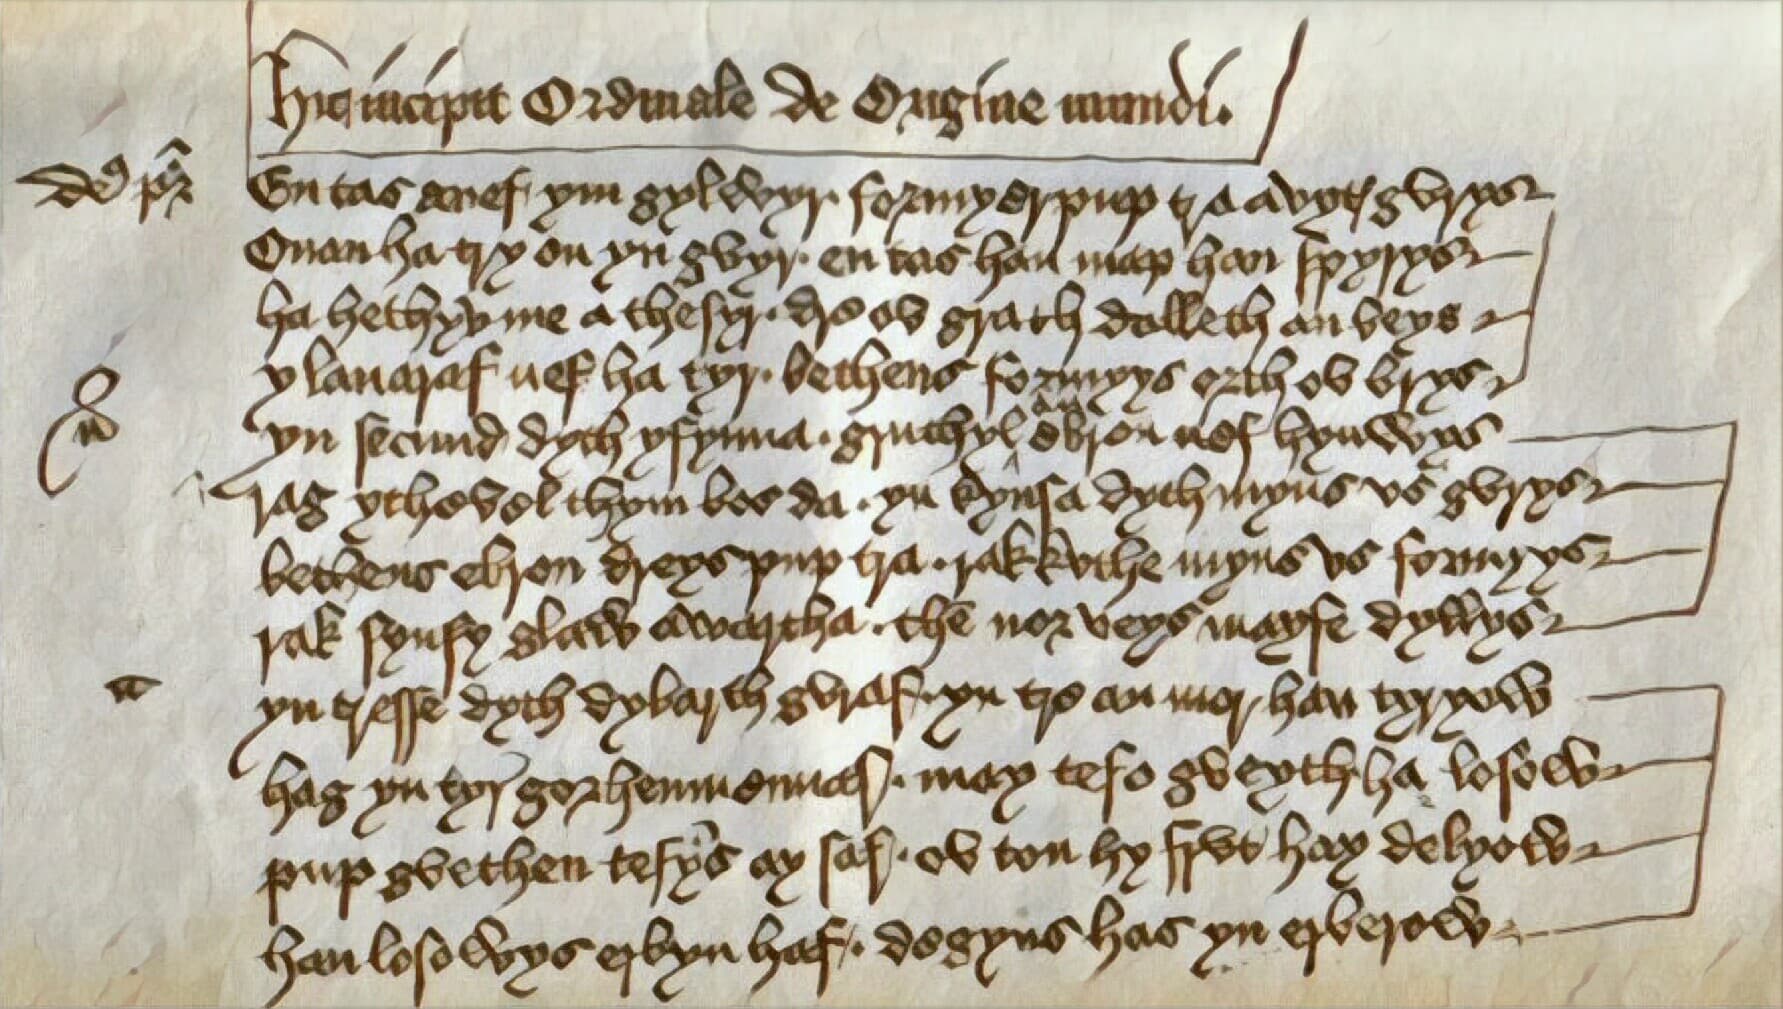 Hic incipit Ordinale de Origine mundi.
de9 pr
En tas a nef ym gylwyr. formyer pup tra a vyt gvrys
Onan ha try on yn gvyr. en tas han map han spyrys
ha hethyv me a thesyr. dre ov grath dalleth an beys
y lavaraf nef ha tyr. bethens formyys orth ov brys
yn secund dyth y fynna. gruthyl an ebron nef hynwys
rag ythevel thym bos da. yn kynsa dyth myns vs gvrys
bethens ebron dreys pup tra. rak kvthe myns vs formyys
rak synsy glaw awartha. the nor veys may fe dyllys
yn tresse dyth dybarth gvraf. yn tre an mor han tyryow
hag yn tyr gorhenmennaf. may tefo gveyth ha losow
pup gvethen tefyns ay saf. ov ton hy frvt hay delyow
han losowys erbyn haf. degyns has yn erberow